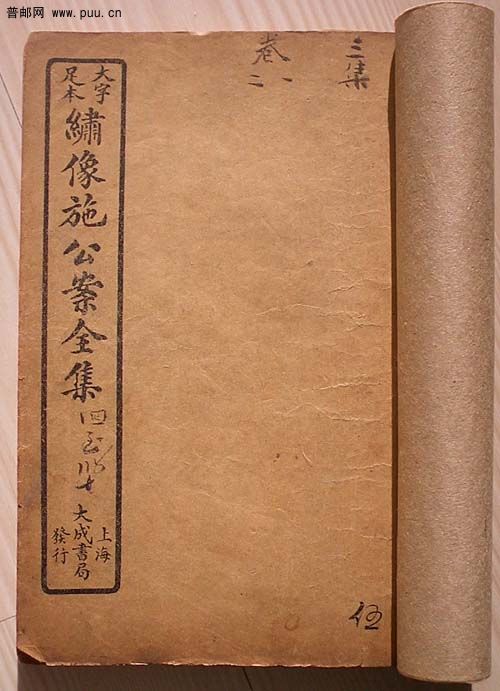 普邮网 www.puu.cn
三集
卷
一二
大字
足本
繡像施公案全集
上海
大成書局
發行
伍